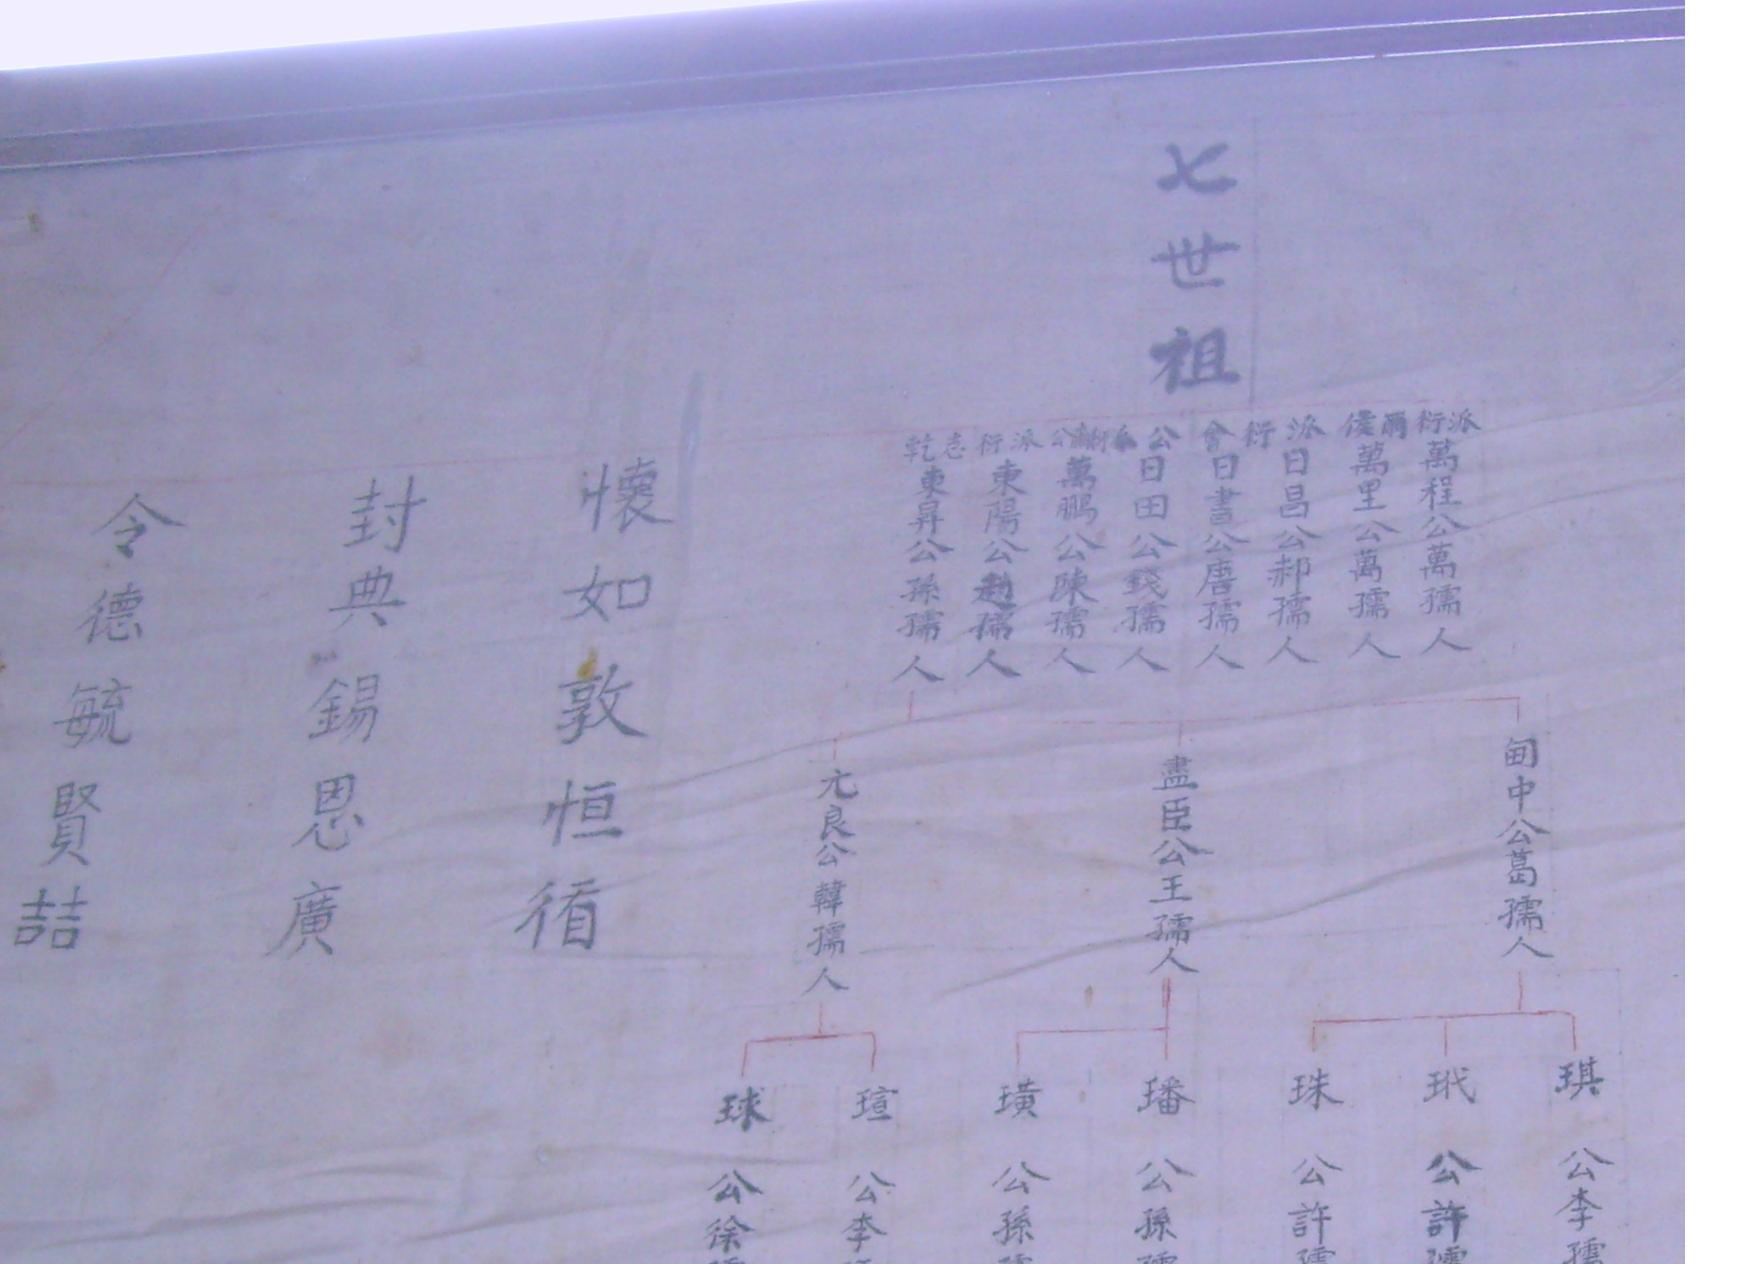 七世祖
派衍
爾
公
派衍會
公
派衍
志乾
萬程公萬孺人
萬里公萬孺人
日昌公郝孺人
日書公唐孺人
日田公錢孺人
萬鵬公陳孺人
東陽公趙孺人
東昇公孫孺人
甸中公葛孺人
盡臣公王孺人
元良公韓孺人
琪公李孺
玳公許孺
珠公許孺
璠公孫孺
璜公孫孺
瑄公李
球公徐
懷如敦恒循
封典錫恩廣
令德毓賢喆